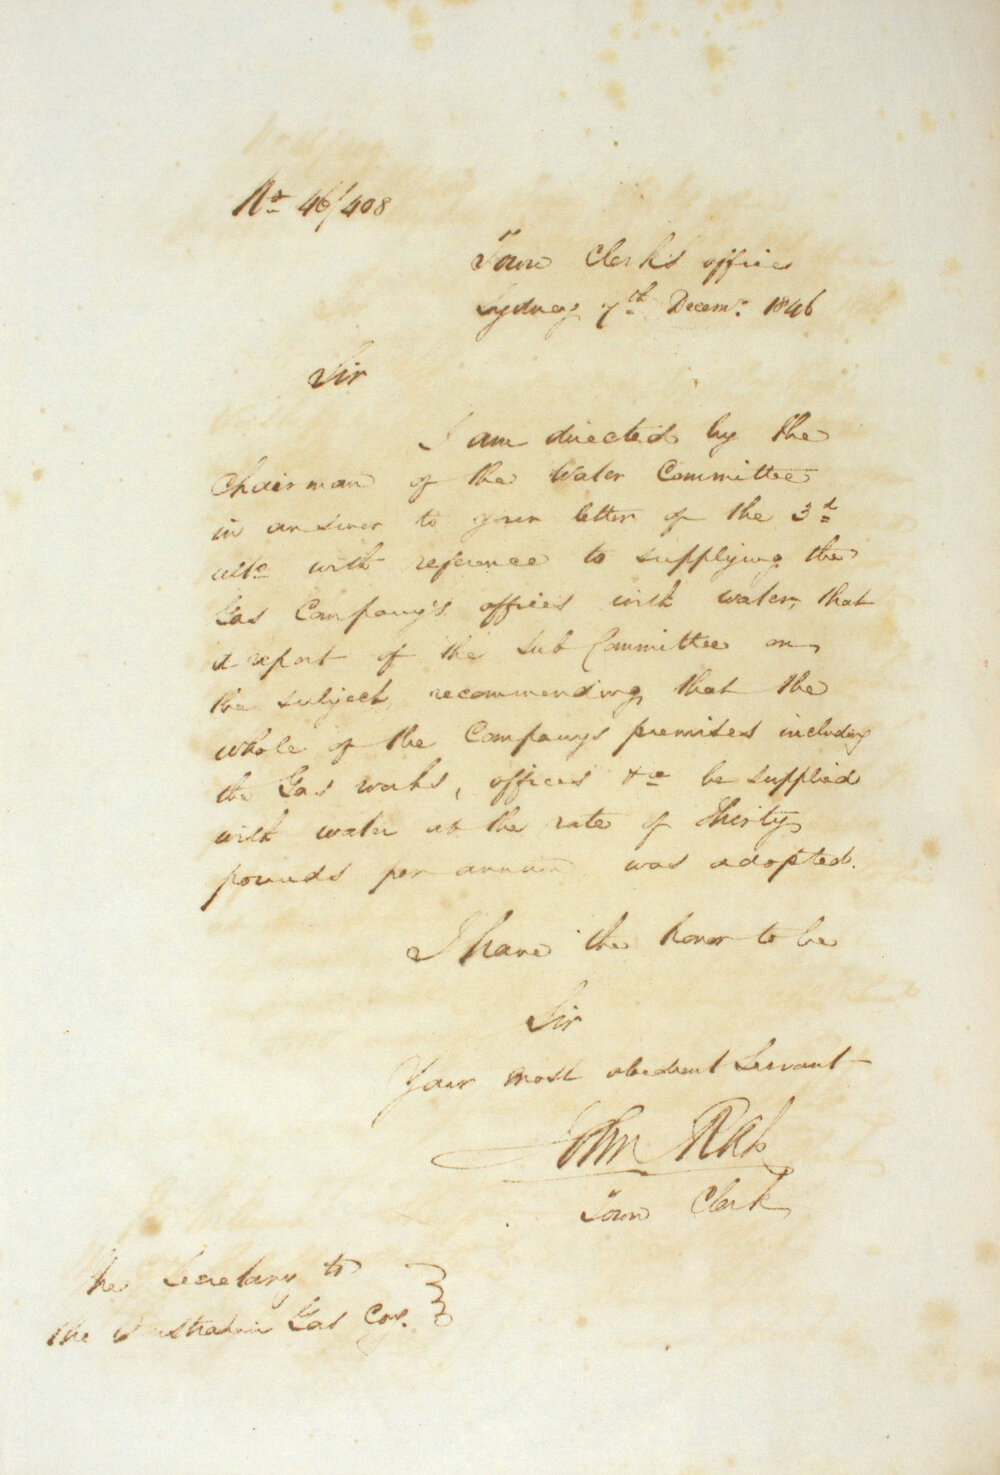 No 46/408
Town Clerk's office
Sydney 7th Decemr. 1846
Sir
I am directed by the
Chairman of the Water Committee
in answer to your letter of the 3d
ulto with reference to supplying the
Gas Company's offices with water, that
a report of the Sub Committee on
the subject, recommending that the
whole of the Companys premises including
the Gas works, offices &c be supplied
with water at the rate of Thirty
pounds per annum was adopted.
I have the honor to be
Sir
Your most obedient Servant
John Rae
Town Clerk
The Secretary to
the Australian Gas Coy.